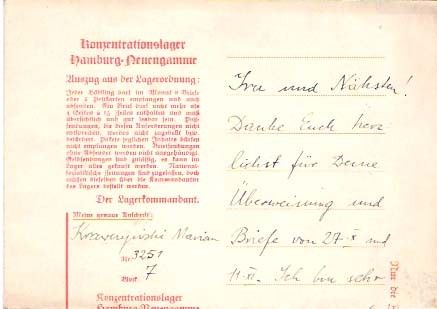 Konzentrationslager
Hamburg-Neuengamme
Auszug aus der Lagerordnung:
Jeder Häftling darf im Monat 2 Briefe
oder 2 Postkarten empfangen und auch
absenden. Ein Brief darf nicht mehr als
4 Seiten à 15 Zeilen enthalten und muß
übersichtlich und gut lesbar sein. Post-
sendungen, die diesen Anforderungen nicht
entsprechen, werden nicht zugestellt bezw.
befördert. Pakete jeglichen Inhaltes dürfen
nicht empfangen werden. Postsendungen
ohne Absender werden nicht ausgehändigt.
Geldsendungen sind zulässig, es kann im
Lager alles gekauft werden. National-
sozialistische Zeitungen sind zugelassen, doch
müssen dieselben über die Kommandantur
des Lagers bestellt werden.
Der Lagerkommandant.
Meine genaue Anschrift:
Marian
Nr. 3251
Block 7
Konzentrationslager
Hamburg-Neuengamme
und Nächsten!
Danke Euch herz
lichst für Deine
Überweisung und
Briefe von 27-X und
11-XI. Ich bin sehr
Nur die